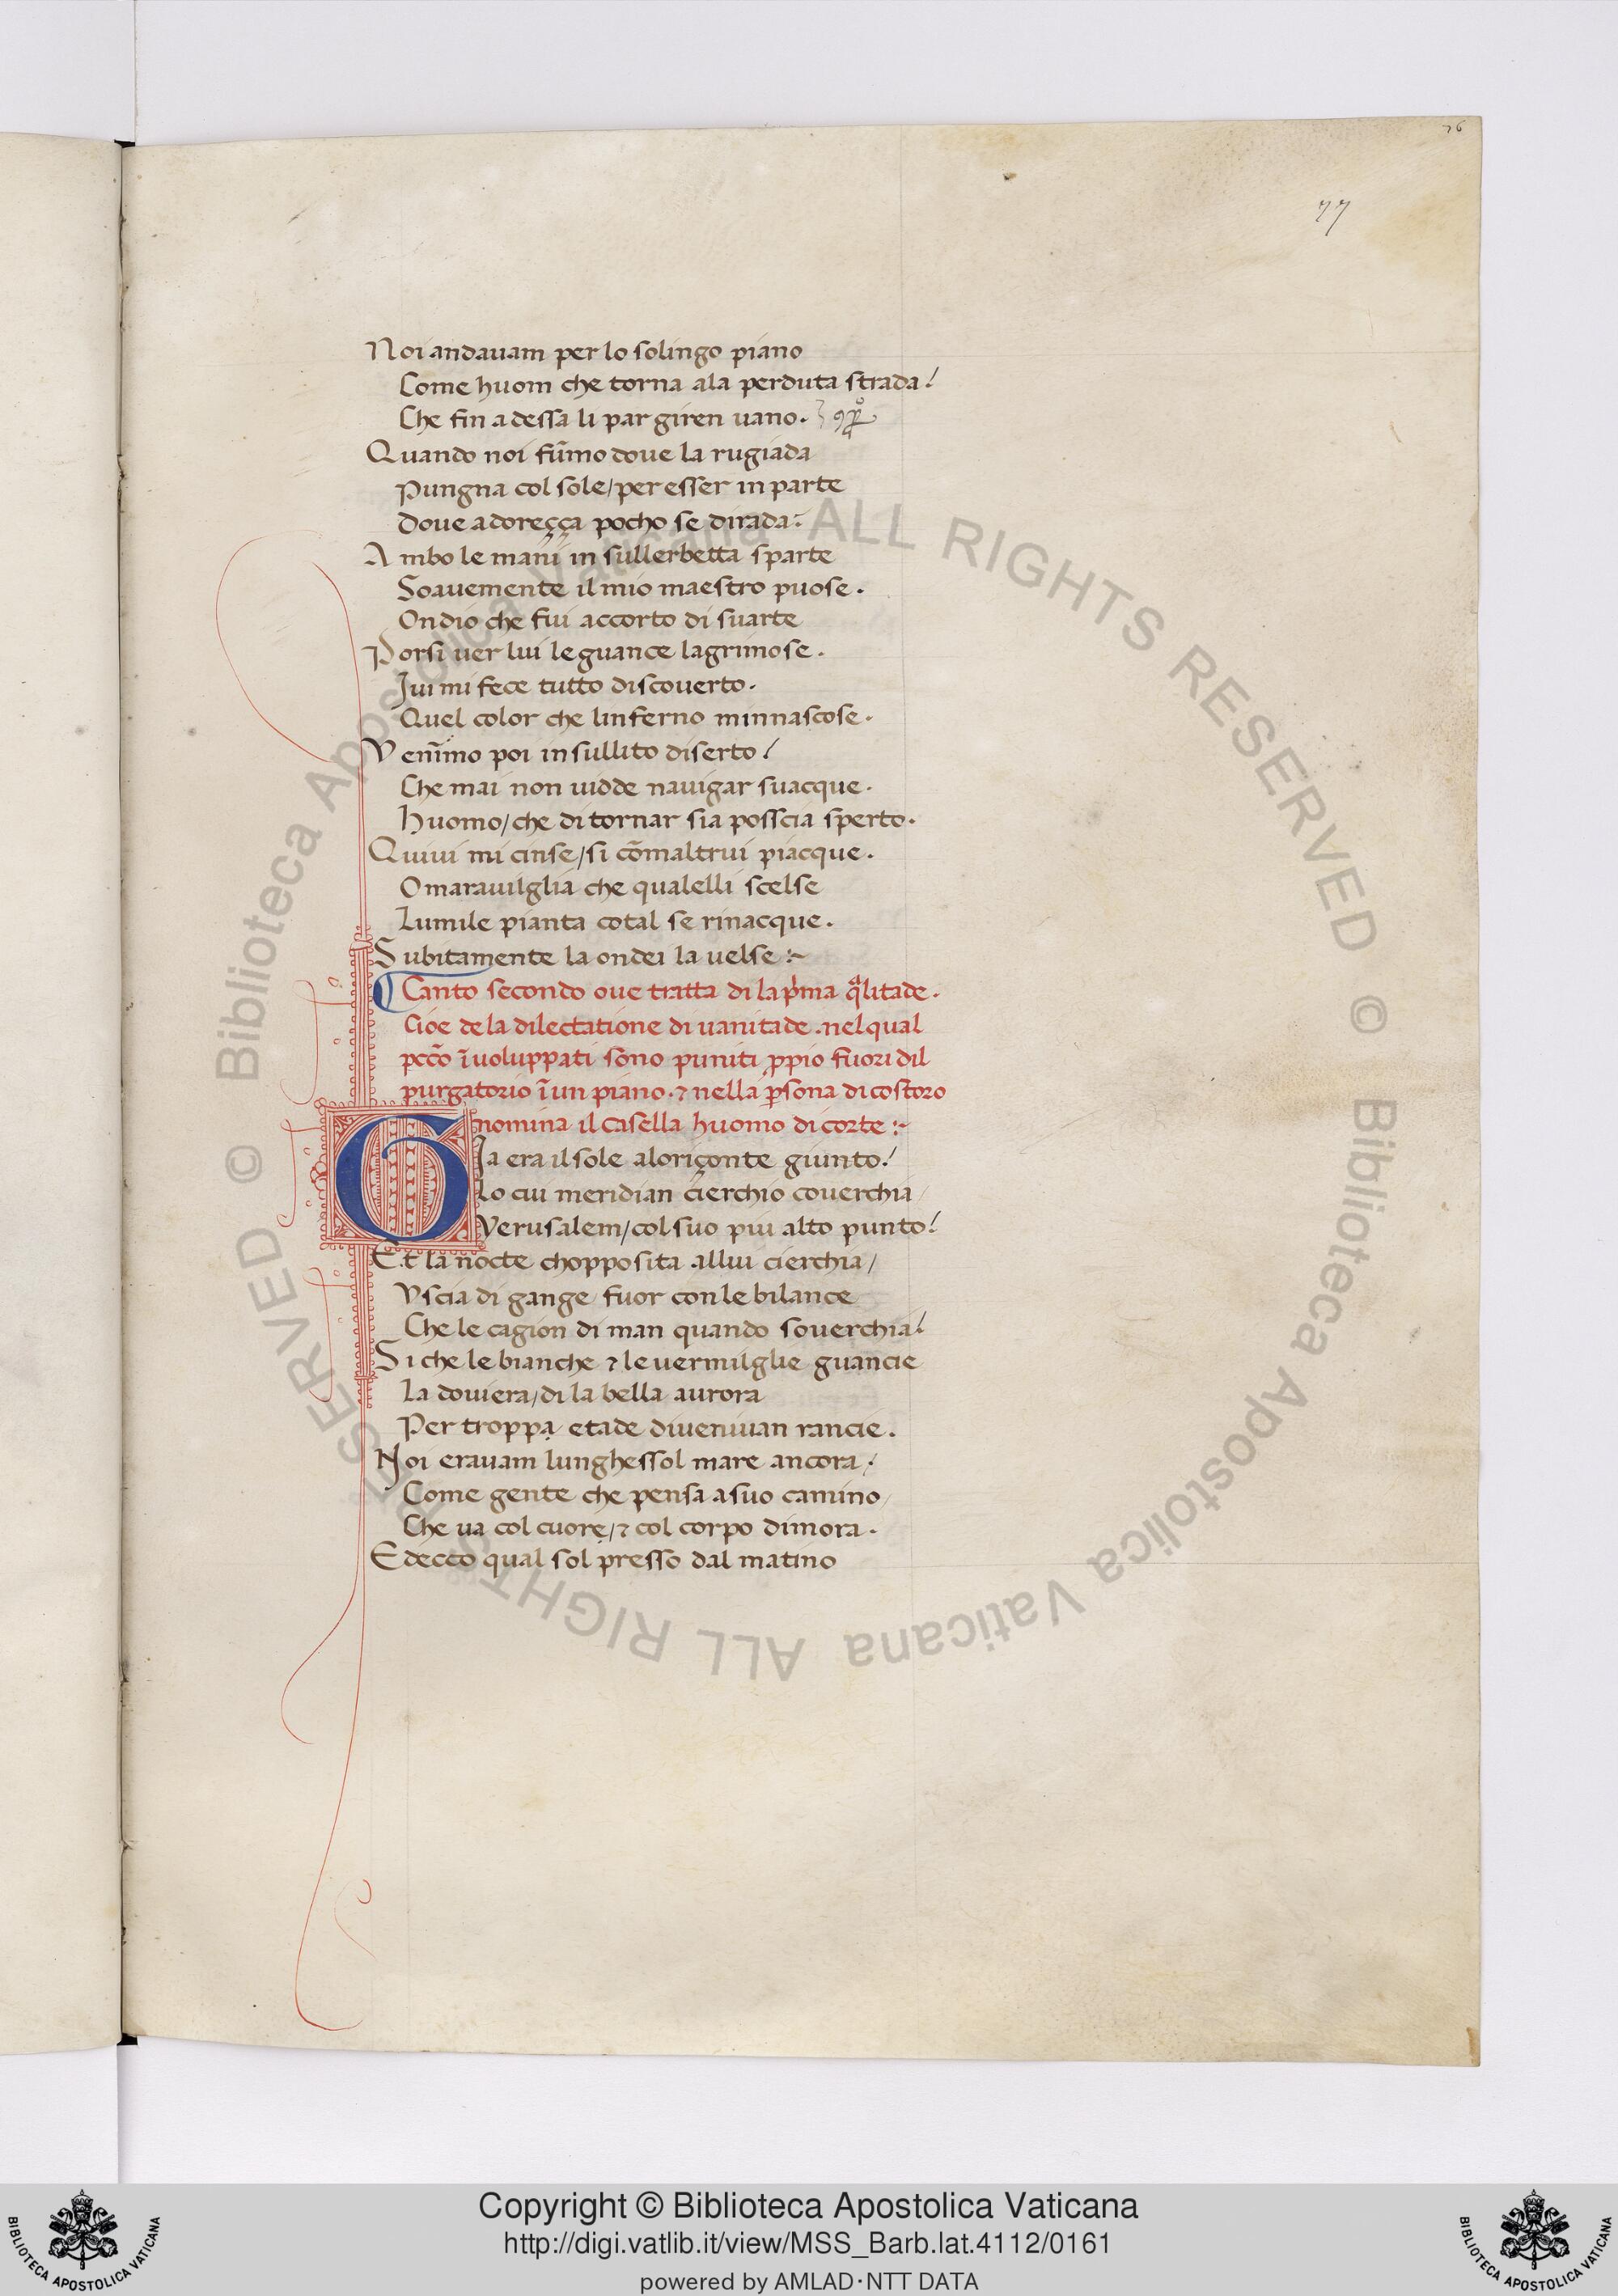 76
77
Noi andauam per lo solingo piano
Come huom che torna ala perduta strada!
Che fin a dessa li par giren uano.
Quando noi fūmo doue la rugiada
Pungna col sole/per esser in parte
Doue adoreçça pocho se dirada:
Ambo le mani in sullerbetta sparte
Soauemente il mio maestro puose.
Ondio che fui accorto di suarte
Porsi uer lui le guance lagrimose.
Iui mi fece tutto discouerto.
Quel color che linferno minnascose.
Venīmo poi in sullito diserto!
Che mai non uidde nauigar suacque.
huomo/che di tornar sia posscia sperto.
Quiui mi cinse/si cōmaltrui piacque.
O marauilglia che qualelli scelse
Lumile pianta cotal se rinacque.
Subitamente la ondei la uelse :~
Canto secondo oue tratta di la p̄ma q̄litade.
Cioe de la dilectatione di uanitade .nel qual
pccō īuoluppati sono puniti ꝓpio fuori dil
purgatorio ī un piano.⁊ nella ꝑsona di costoro
nomina il Casella huomo di corte :~
Gia era il sole aloriçonte giunto!
Lo cui meridian cierchio couerchia
Yerusalem/col suo piu alto punto!
Et la nocte chopposita allui cierchia/
Vscia di gange fuor con le bilance
Che le cagion di man quando souerchia!
Si che le bianche ⁊ le uermilglie guancie
La douiera/di la bella aurora
Per troppa etade diueniuan rancie.
Noi erauam lunghessol mare ancora/
Come gente che pensa a suo camino/
Che ua col cuore/⁊ col corpo dimora.
Edecco qual sol presso dal matino
© Biblioteca Apostolica Vaticana ALL RIGHTS RESERVED
© Biblioteca Apostolica Vaticana ALL RIGHTS RESERVED
Copyright © Biblioteca Apostolica Vaticana
http://digi.vatlib.it/view/MSS_Barb.lat.4112/0161
powered by AMLAD·NTT DATA
BIBLIOTECA APOSTOLICA VATICANA
BIBLIOTECA APOSTOLICA VATICANA